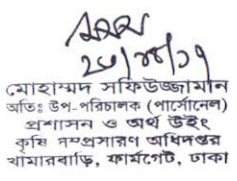 ২০/১১/১৭
মোহাম্মদ সফিউজ্জামান
অতিঃ উপ-পরিচালক (পার্সোনেল)
প্রশাসন ও অর্থ উইং
কৃষি সম্প্রসারণ অধিদপ্তর
খামারবাড়ি, ফার্মগেট, ঢাকা